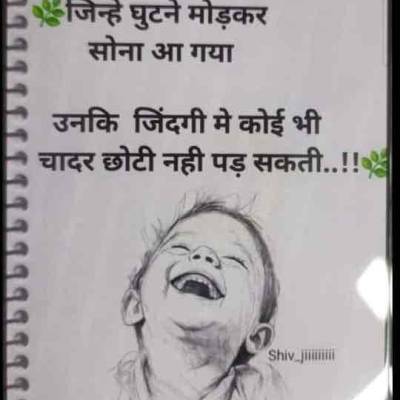 जिन्हे घुटने मोड़कर
सोना आ गया
उनकि जिंदगी मे कोई भी
चादर छोटी नही पड़ सकती..!!
Shiv_jiiiiiiiii